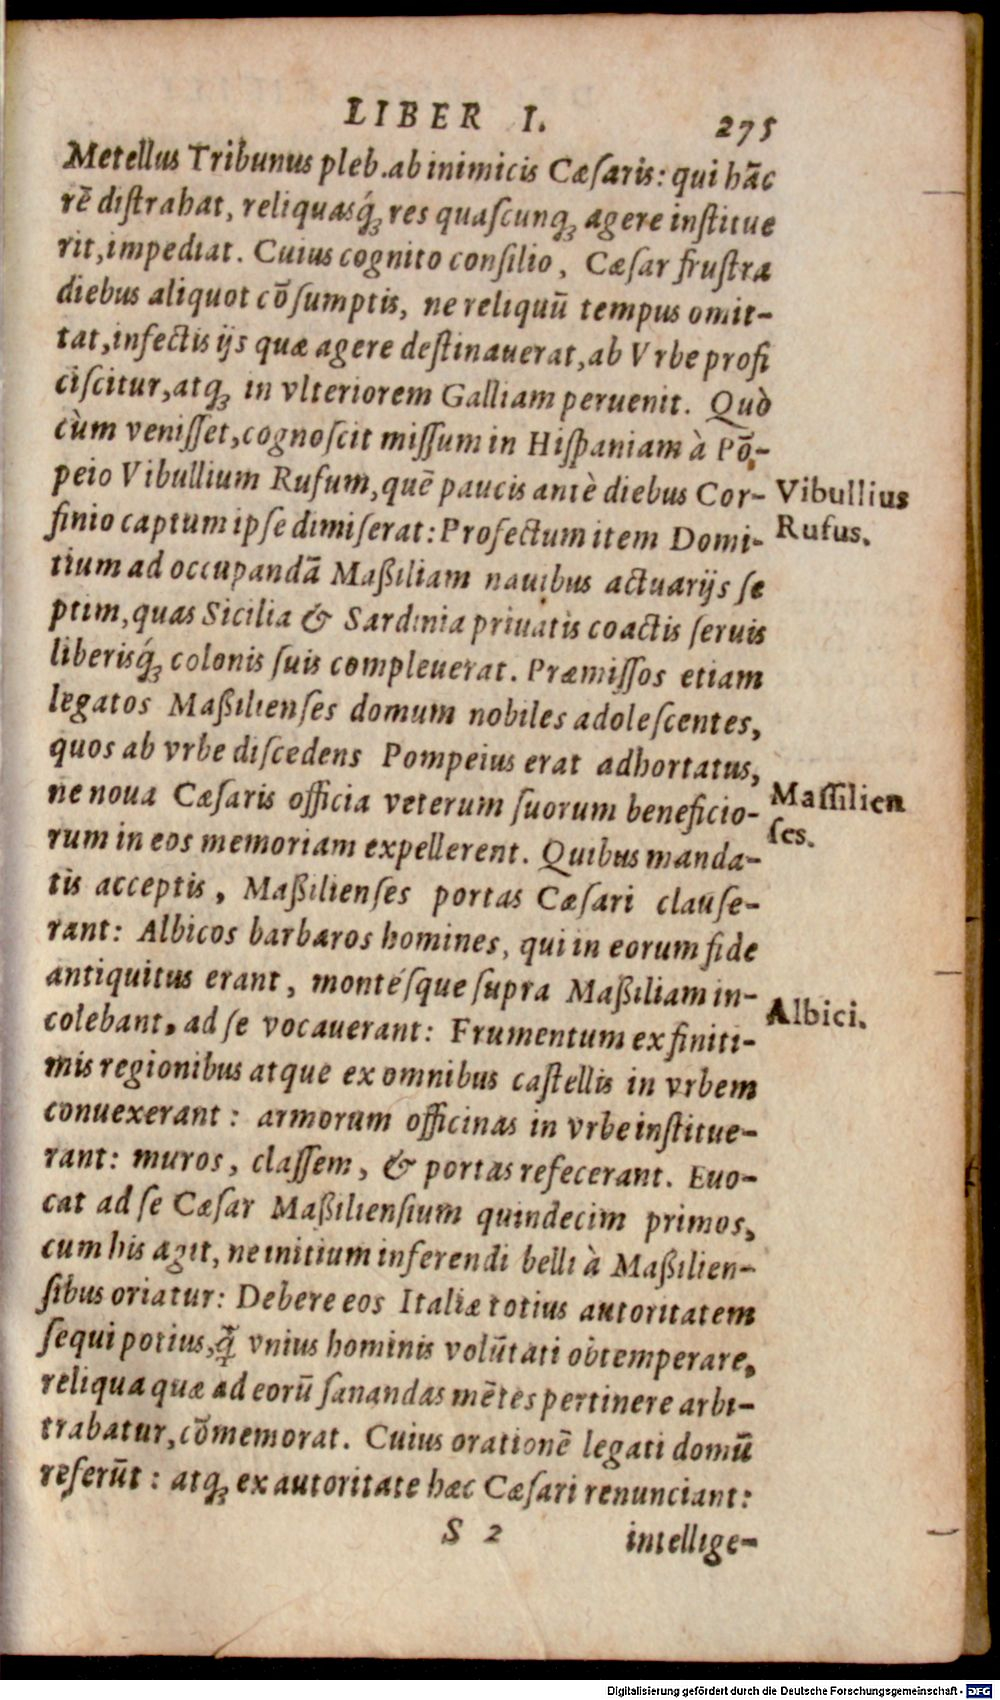 LIBER I. 275
Metellus Tribunus pleb. ab inimicis Cæſaris: qui hāc
rē diſtrahat, reliquasq́ꝫ res quaſcunqꝫ agere inſtitue
rit, impediat. Cuius cognito conſilio, Cæſar fruſtra
diebus aliquot cōſumptis, ne reliquū tempus omit-
tat, infectis ijs quæ agere deſtinauerat, ab Vrbe profi
ciſcitur, atqꝫ in vlteriorem Galliam peruenit. Quò
cùm veniſſet, cognoſcit miſſum in Hiſpaniam à Pō-
peio Vibullium Rufum, quē paucis antè diebus Cor-
finio captum ipſe dimiſerat: Profectum item Domi-
tium ad occupandā Maßiliam nauibus actuarijs ſe
ptim, quas Sicilia & Sardinia priuatis coactis ſeruis
liberisq́ꝫ colonis ſuis compleuerat. Præmiſſos etiam
legatos Maßilienſes domum nobiles adoleſcentes,
quos ab vrbe diſcedens Pompeius erat adhortatus,
ne noua Cæſaris officia veterum ſuorum beneficio-
rum in eos memoriam expellerent. Quibus manda-
tis acceptis, Maßilienſes portas Cæſari clauſe-
rant: Albicos barbaros homines, qui in eorum fide
antiquitus erant, montésque ſupra Maßiliam in-
colebant, ad ſe vocauerant: Frumentum ex finiti-
mis regionibus atque ex omnibus caſtellis in vrbem
conuexerant: armorum officinas in vrbe inſtitue-
rant: muros, claſſem, & portas refecerant. Euo-
cat ad ſe Cæſar Maßilienſium quindecim primos,
cum his agit, ne initium inferendi belli à Maßilien-
ſibus oriatur: Debere eos Italiæ totius autoritatem
ſequi potius, q̄ vnius hominis volūtati obtemperare,
reliqua quæ ad eorū ſanandas mētes pertinere arbi-
trabatur, cōmemorat. Cuius orationē legati domū
referūt: atqꝫ ex autoritate hæc Cæſari renunciant:
S 2 intellige-
Vibullius
Rufus.
Maſſilien
ſes.
Albici.
Digitalisierung gefördert durch die Deutsche Forschungsgemeinschaft - DFG